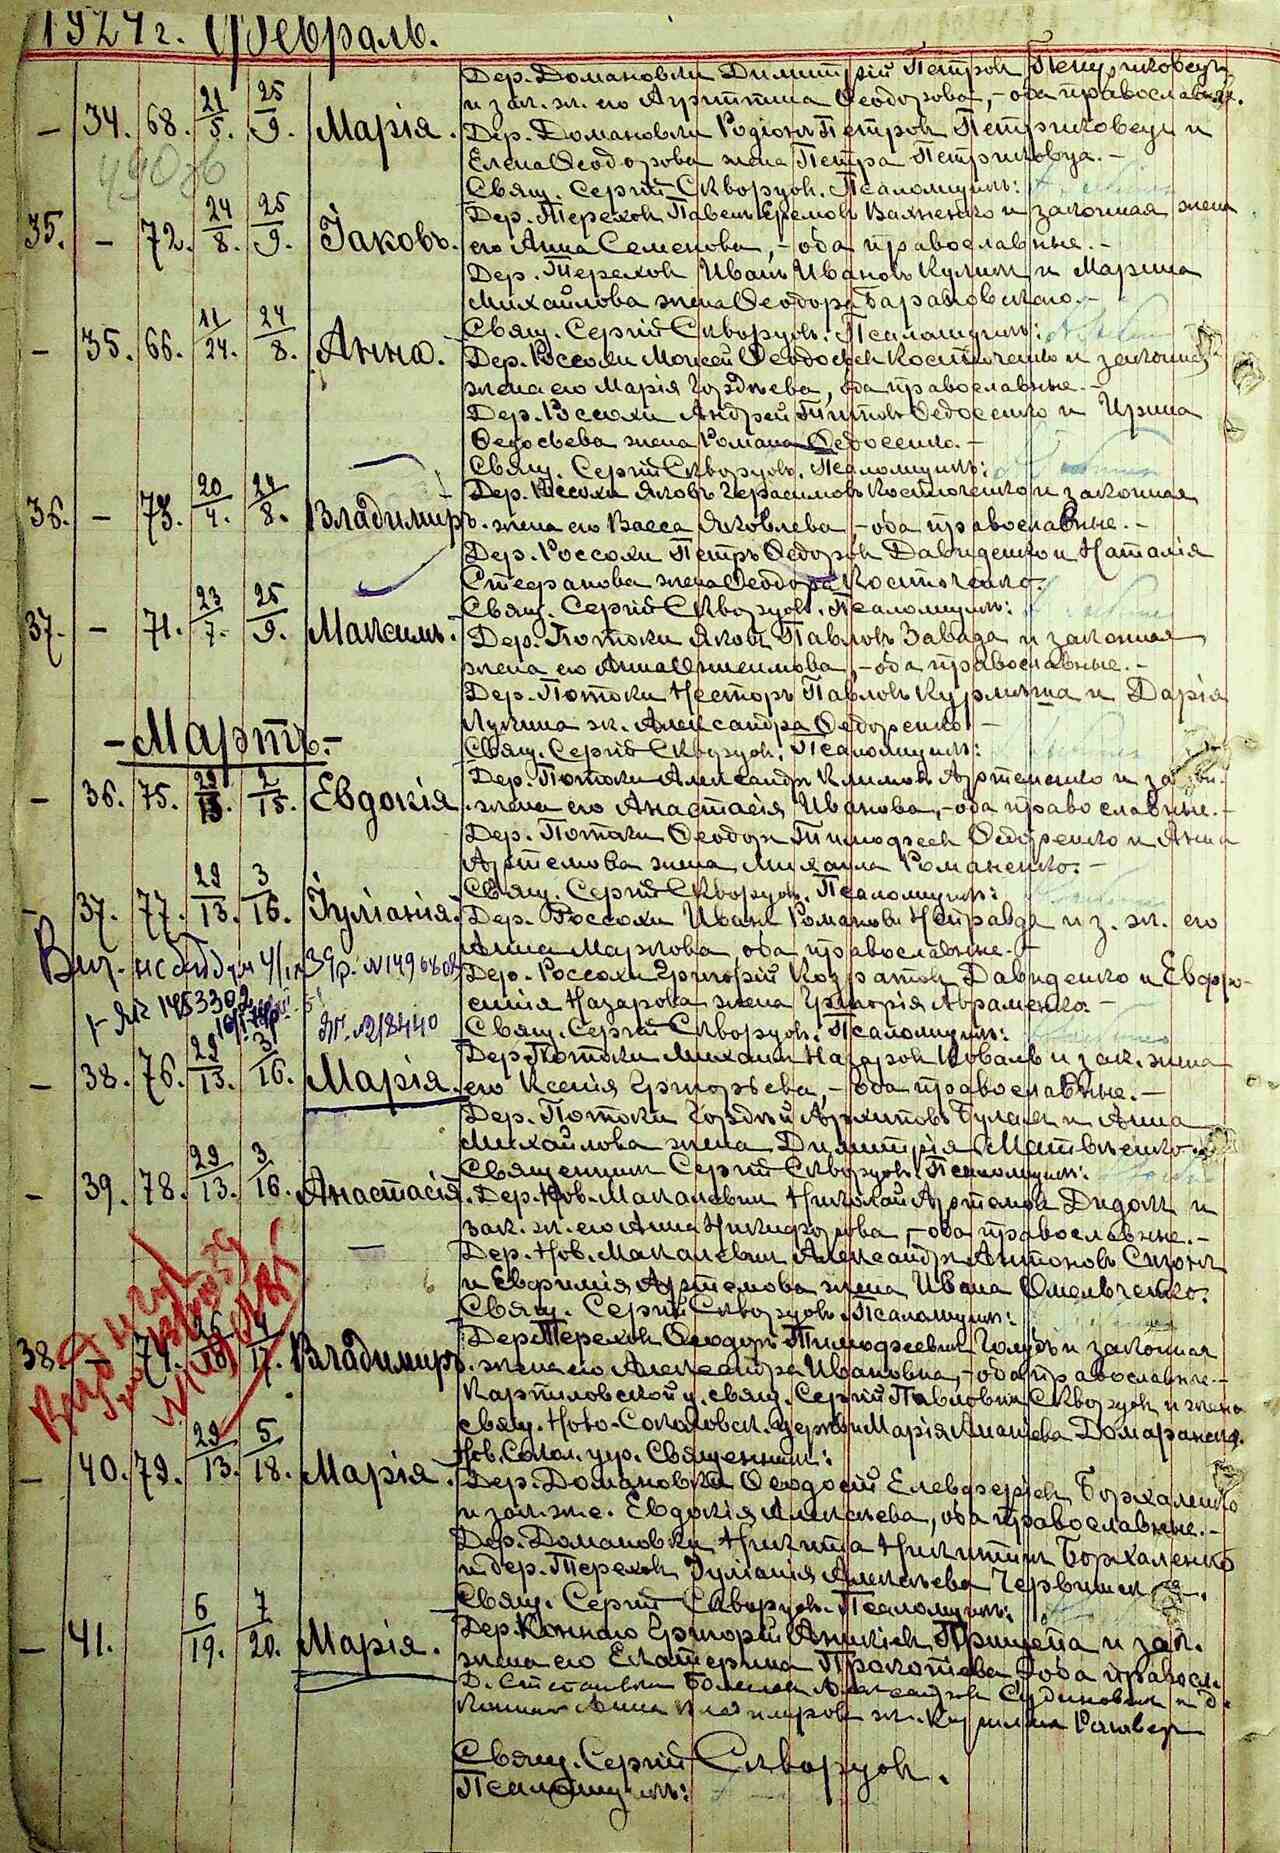 1924 г. Февраль.
Дер. Домановки Димитрій Петров
и зак. ж. его Агриппина Феодорова, – оба православные.
– 34. 68. 21/5. 25/9. Марія. Дер. Домановки Родіонъ Петров Петриковец и
Елена Феодорова жена Петра Петриковца. –
Свящ. Сергій Скворцов. Псаломщик:
Дер. Терехов Павел Еремов Вахненко и законная жена
35. – 72. 24/8. 25/9. Іаковъ. его Анна Семенова, – оба православные. –
Дер. Терехов Иван Иванов Кулик и Марина
Михайлова жена Феодора Барановского. –
Свящ. Сергій Скворцов. Псаломщик:
– 35. 66. 11/24. 24/8. Анна. Дер. Россохи Моисей Феодосіев Костюченко и законная
жена его Марія Гордѣева, оба православные. –
Дер. Россохи Андрей Титов Федосенко и Ирина
Федосьева жена Романа Федосенко. –
Свящ. Сергій Скворцов. Псаломщик:
Дер. Россохи Яковъ Герасимовъ Костюченко и законная
36. – 73. 20/4. 24/8. Владимиръ. жена его Васса Яковлева – оба православные. –
Дер. Россохи Петръ Федоров Давиденко и Наталія
Стефанова жена Феодора Костюченко.
Свящ. Сергій Скворцов. Псаломщик:
37. – 71. 23/7. 25/9. Максимъ. Дер. Потоки Яков Павловъ Завада и законная
жена его Анна Онисимова, – оба православные. –
Дер. Потоки Нестор Павловъ и Дарія
Лукина ж. Александра Федоренко –
– Мартъ. –
Свящ. Сергій Скворцов. Псаломщик:
Дер. Потоки Александр Климов Артеменко и зак.
– 36. 75. 29/13. 2/15. Евдокія. жена его Анастасія Иванова, – оба православные. –
Дер. Потоки Феодор Тимофеев Федоренко и Анна
Артемова жена Михаила Романенко. –
Свящ. Сергій Скворцов. Псаломщик:
– 37. 77. 29/13. 3/16. Іуліанія. Дер. Россохи Иван Романов Неправда и з. ж. его
Анна Маркова, оба православные. –
Дер. Россохи Григорій Кодратов Давиденко и Евфро-
синія Назарова жена Григорія Авраменко. –
Свящ. Сергій Скворцов. Псаломщик:
Дер. Потоки Михаил Назаров Коваль и зак. жена
– 38. 76. 29/13. 3/16. Марія. его Ксенія Григорьева, – оба православные. –
Дер. Потоки Гордѣй Архиповъ Булах и Анна
Михайлова жена Димитрія Матвѣенко.
Священник Сергій Скворцов. Псаломщик:
– 39. 78. 29/13. 3/16. Анастасія. Дер. Нов. Макалевич Николай Артемов Дидок и
зак. ж. его Анна Никифорова, – оба православные. –
Дер. Нов. Макалевич Александр Антонов
и Евфимія Артемова жена Ивана Омельченко.
Свящ. Сергій Скворцов. Псаломщик:
Дер. Терехов Феодор Тимофеевич Голубъ и законная
38. – 74. Владимиръ. жена его Александра Ивановна, – оба православные. –
Карпиловской ц. свящ. Сергій Павлович Скворцов и жена
свящ. Ново-Соколовск. церкви Марія
Нов. Сокол. цер. Священник:
– 40. 79. 29/13. 5/18. Марія. Дер. Домановки Феодосій Елевферіев Борхаленко
и зак. ж. е. Евдокія Алексѣева, оба православные. –
Дер. Домановки Никита Никитин Борхаленко
и дер. Терехов Іуліанія Алексѣева
Свящ. Сергій Скворцов. Псаломщик:
– 41. 6/19. 7/20. Марія. Григорій Прищепа и зак.
жена его Екатерина Прокопіева оба правосл.
Анна
Свящ. Сергій Скворцов.
Псаломщик: